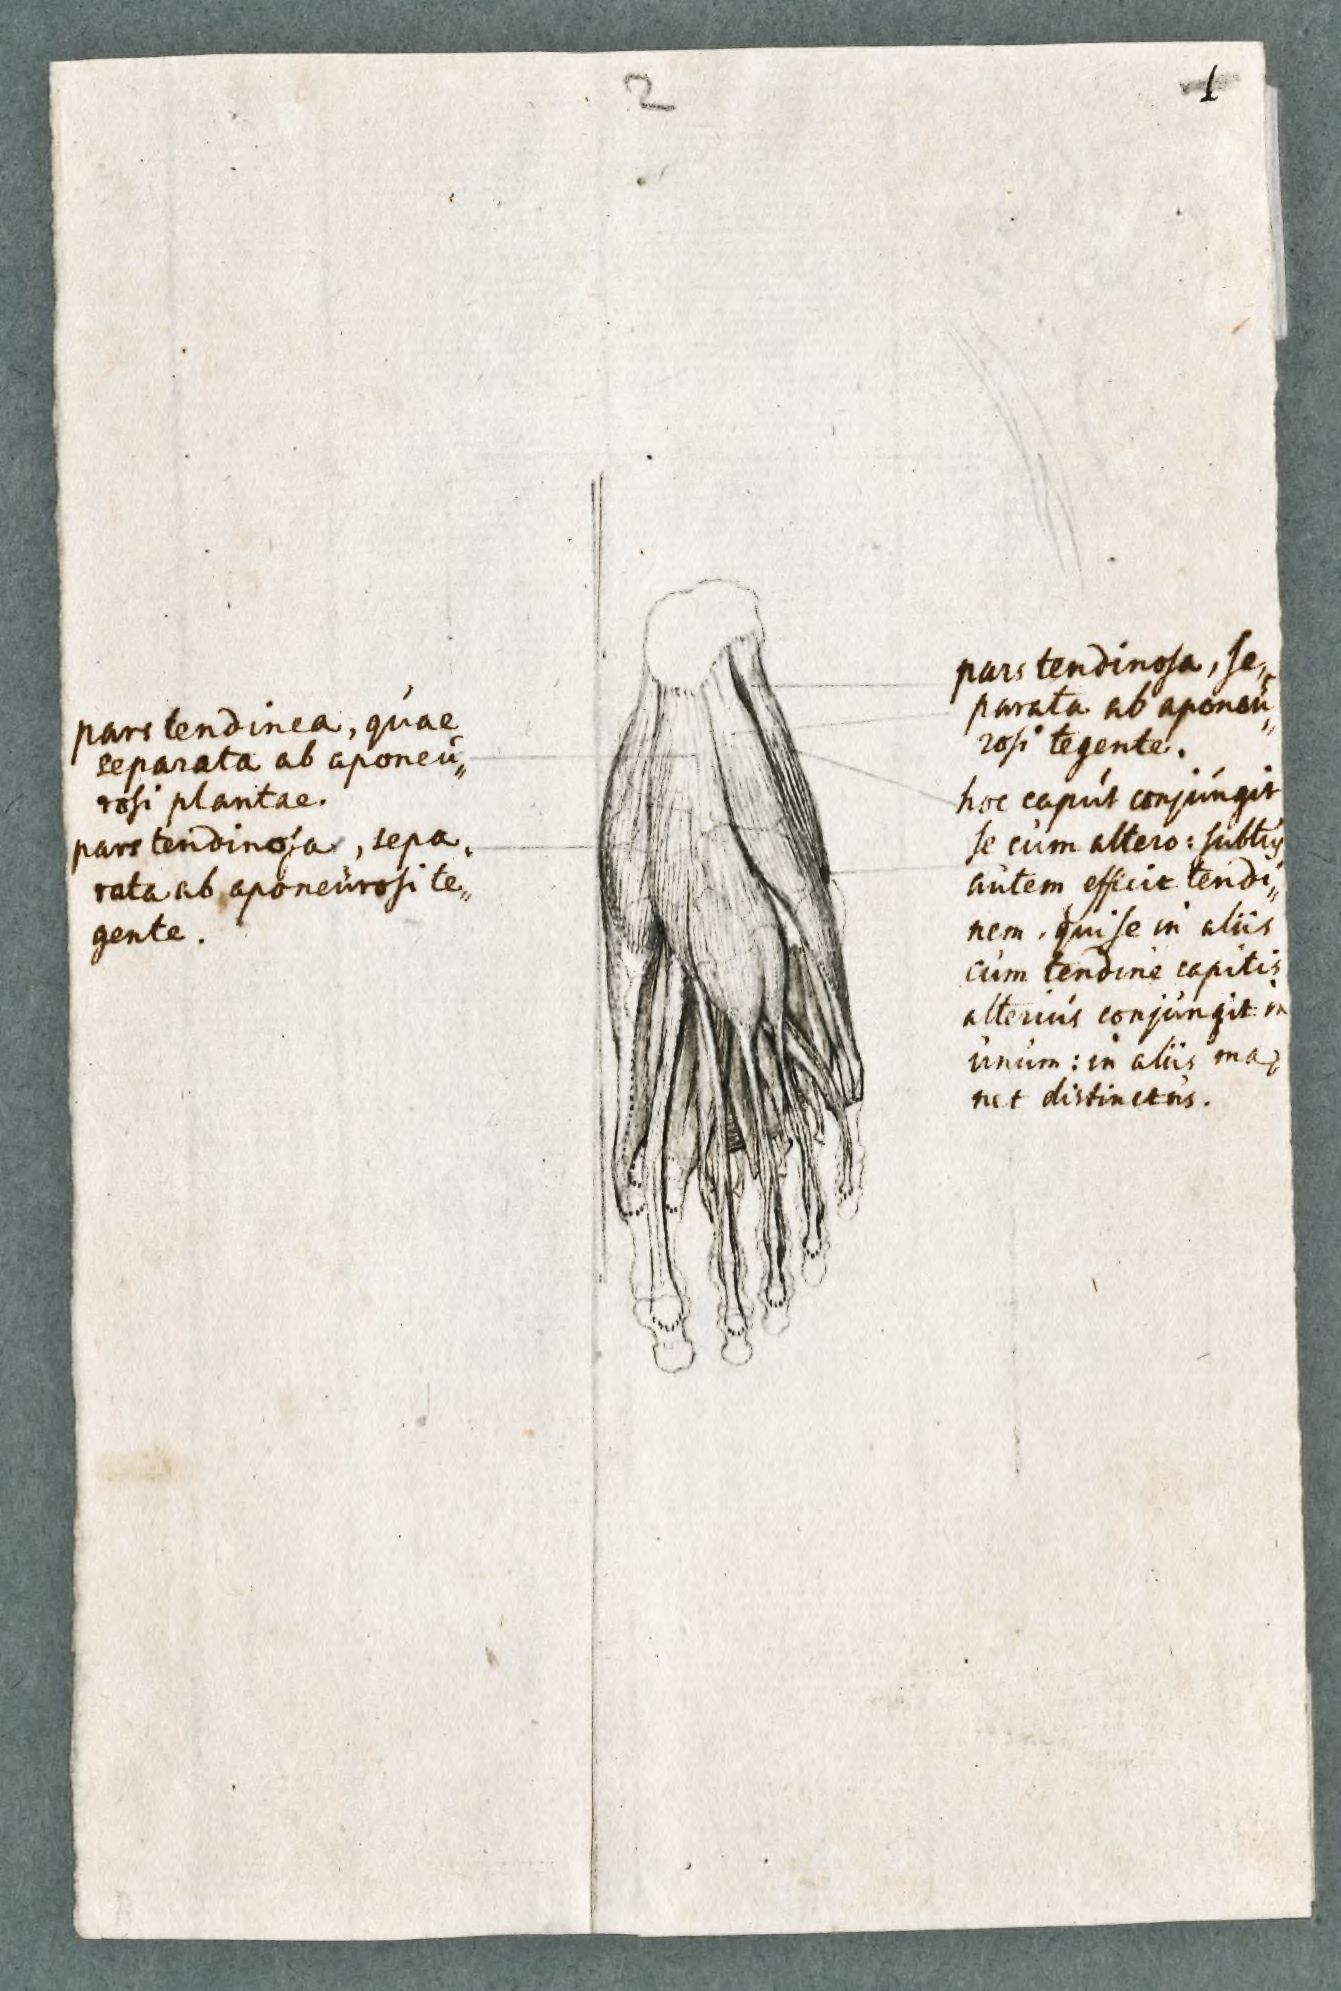 2
1
pars tendinea, quae
separata ab aponeu„
rosi plantae.
pars tendinosa, sepa„
rata ab aponeurosi te„
gente.
pars tendinosa, se„
parata ab aponeu„
rosi tegente.
hoc caput conjungit
se cum altero: subtus
autem efficit tendi„
nem, qui se in aliis
cum tendine capitis
alterius conjungit in
unum: in aliis ma„
net distinctus.